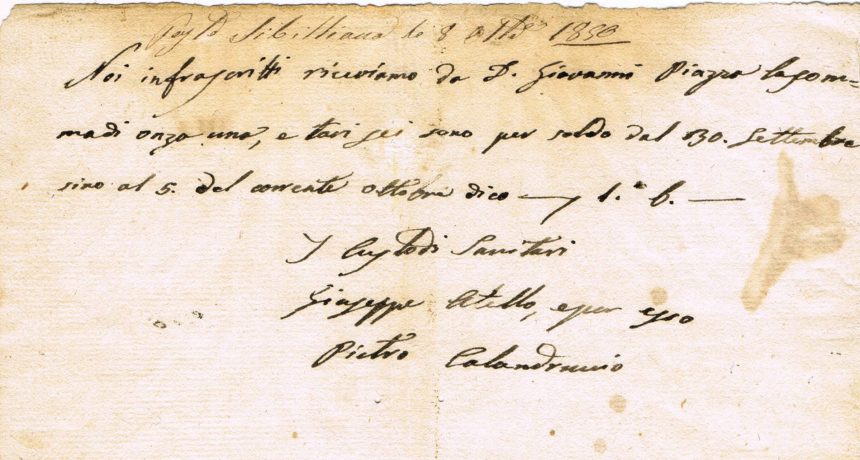 Posto Sibilliana li 8 Ottbe 1850
Noi infrascritti riceviamo da D. Giovanni Piazza la som=
ma di onza una, e tari sei sono per soldo dal 30. Settembre
sino al 5. del corrente Ottobre dico — 1." 6. —
I Custodi Sanitari
Giuseppe Atello, e per esso
Pietro Calandruccio